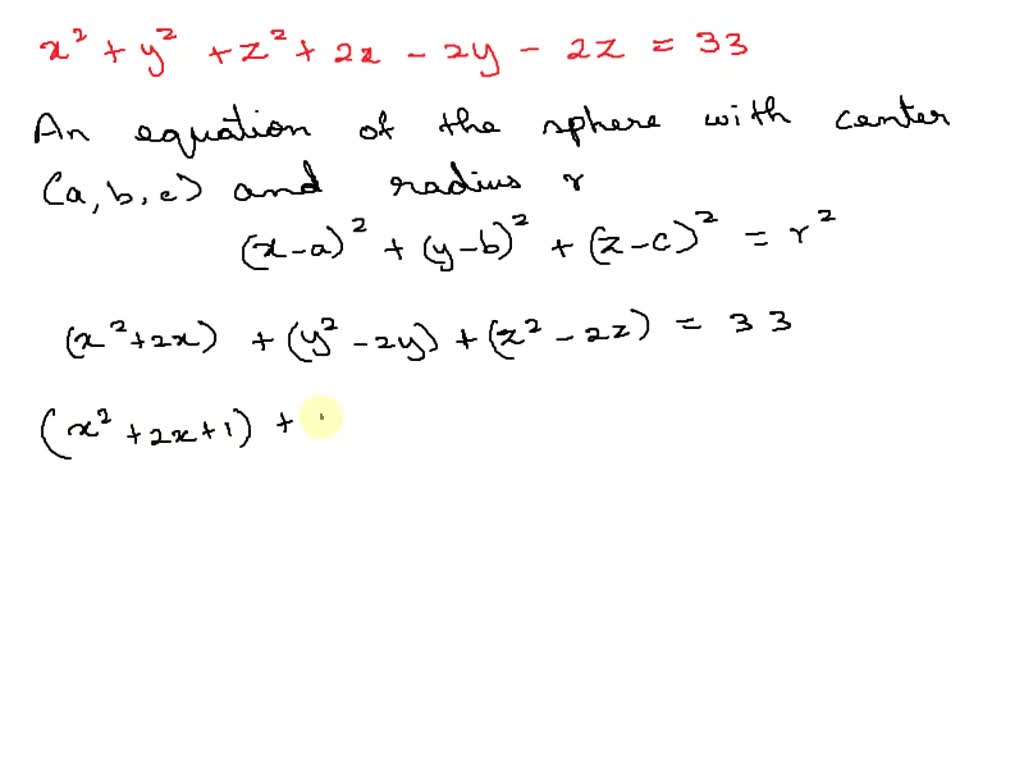 x² + y² + z² + 2x - 2y - 2z = 33
An equation of the sphere with center
(a, b, c) and radius r
(x-a)² + (y-b)² + (z-c)² = r²
(x²+2x) + (y²-2y) + (z²-2z) = 33
(x²+2x+1) +